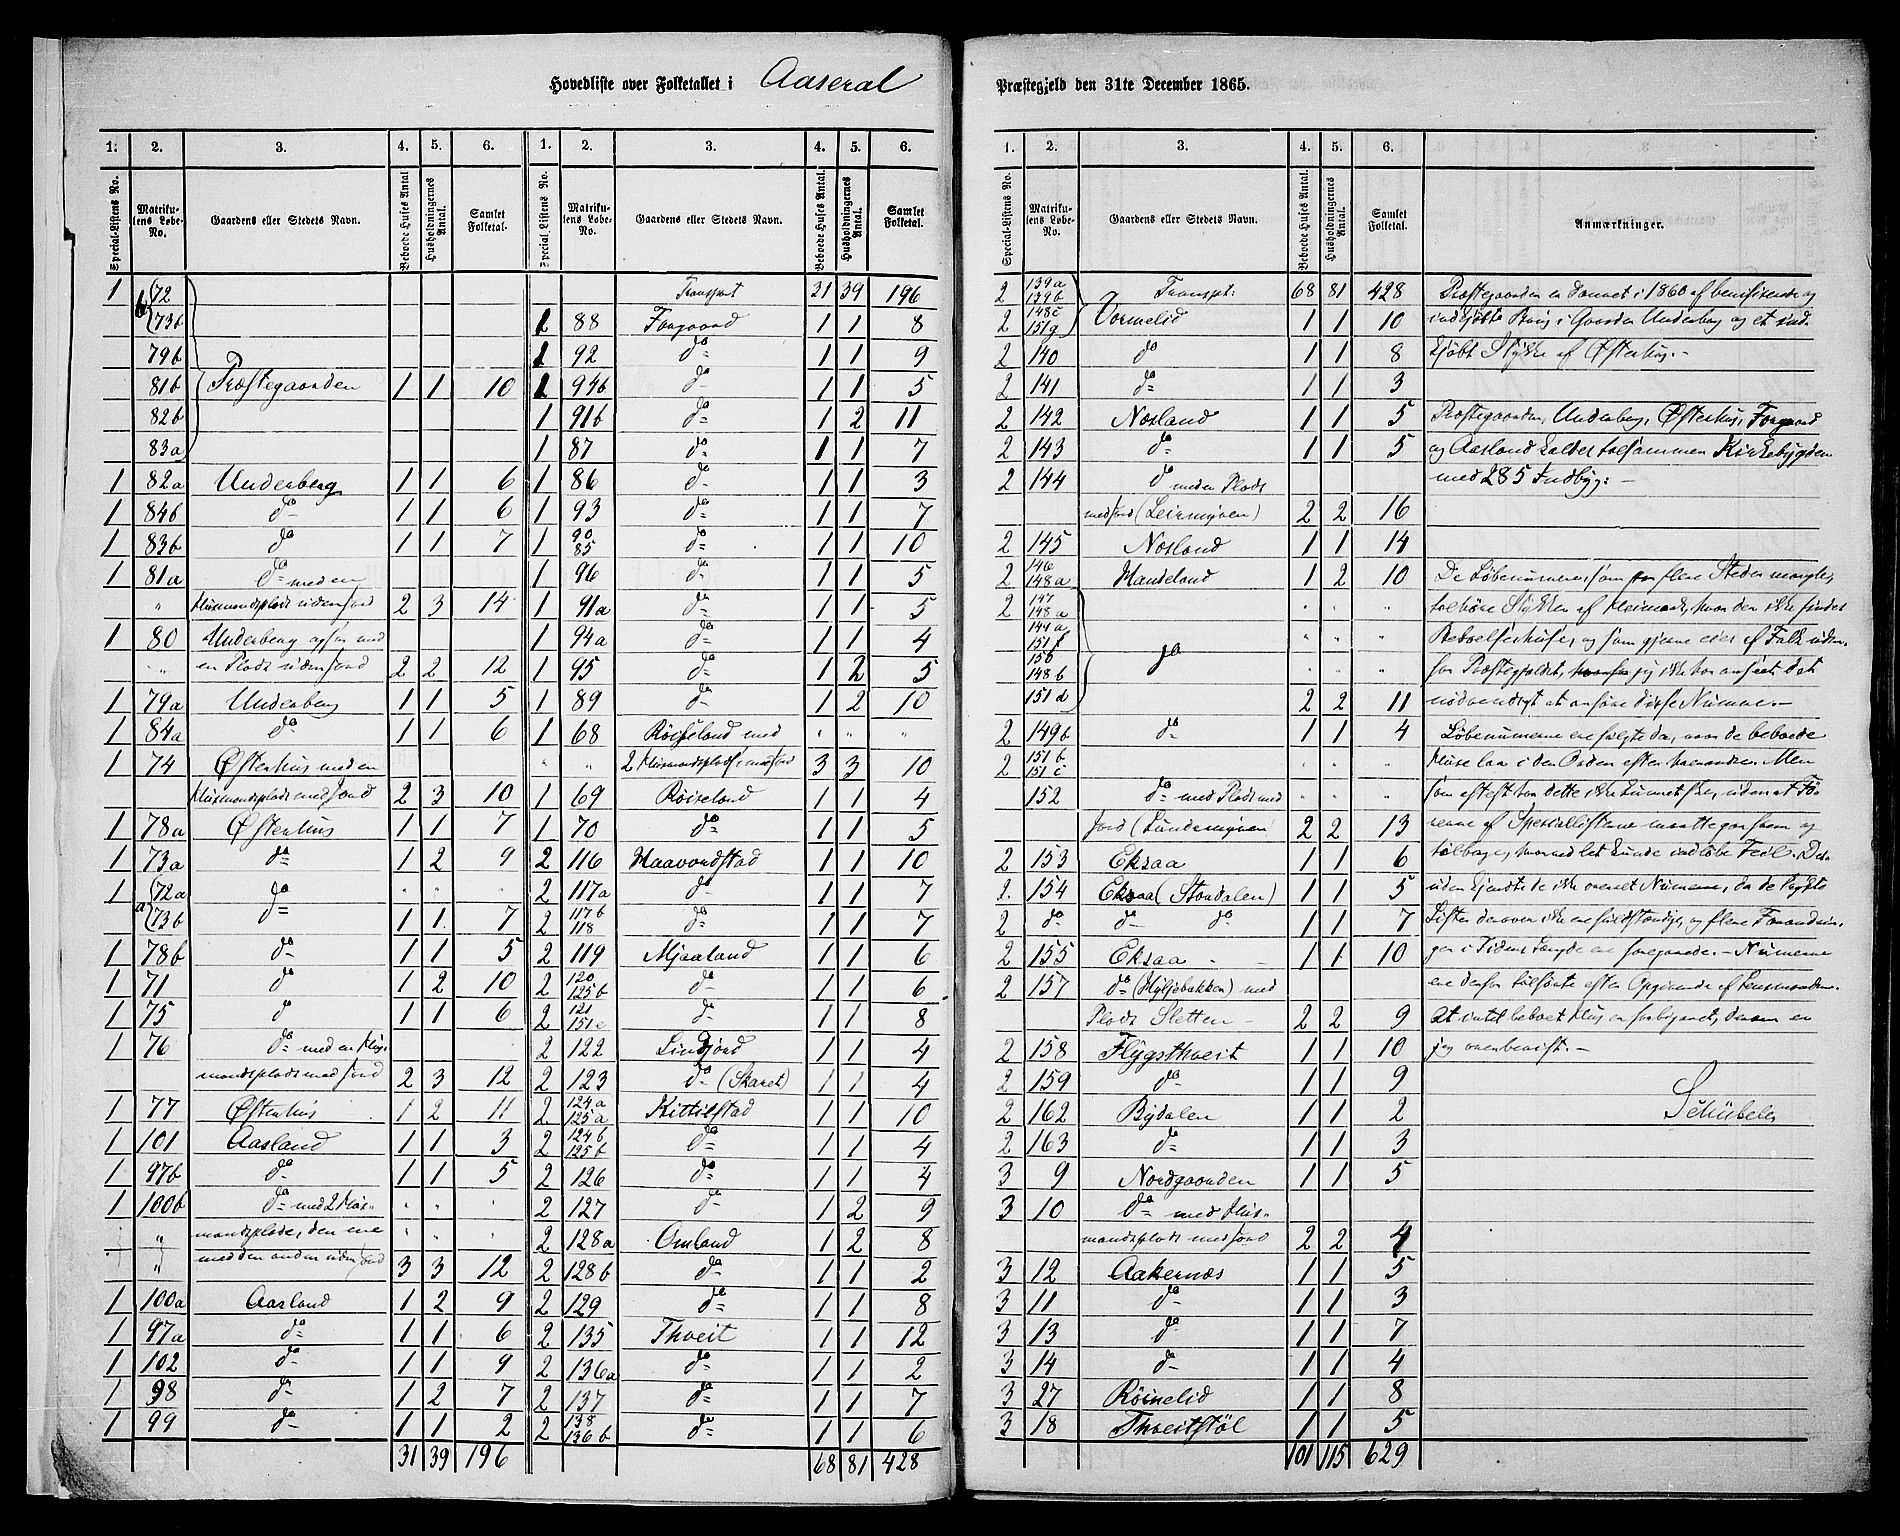 Hovedliste over Folketallet i Aaseral
Præstegjeld den 31te December 1865.
1. 2. 3. 4. 5. 6. 1. 2. 3. 4. 5. 6.
Special-Listens No. Matrikulens Løbe-No. Gaardens eller Stedets Navn. Beboede Huses Antal Husholdningernes Antal. Samlet Folketal. Special-Listens No. Matrikulens Løbe-No. Gaardens eller Stedets Navn. Beboede Huses Antal. Husholdningernes Antal. Samlet Folketal.
1 b 72
73b
79b
81b Præstegaarden 1 1 10
82b
83a
1 82a Underberg 1 1 6
1 84b do 1 1 6
1 83b do 1 1 7
1 81a do med en
" Husmandsplads uden Jord 2 3 14
1 80 Underberg med
" en Plads uden Jord 2 2 12
1 79a Underberg 1 1 5
1 84a do 1 1 6
1 74 Østerhus med en
Husmandsplads med Jord 2 3 10
1 78a Østerhus 1 1 7
1 73a do 1 2 9
1 a 72a do " " "
73b 1 1 7
1 78b do 1 1 5
1 71 do 1 2 10
1 75 do 1 1 6
1 76 do med en Hus-
mandsplads med Jord 2 3 12
1 77 Østerhus 1 2 11
1 101 Aasland 1 1 3
1 97b do 1 1 5
1 100b do med 2 Hus- " " "
" mandsplads, den ene " " "
" med den anden uden Jord 3 3 12
1 100a Aasland 1 2 9
1 97a do 1 1 6
1 102 do 1 1 9
1 98 do 1 2 7
1 99 do 1 1 2
31 39 196
Transport 31 39 196
1 88 Forgaard 1 1 8
1 92 do 1 1 9
1 94b do 1 1 5
1 91b do 1 2 11
1 87 do 1 1 7
1 86 do 1 1 3
1 93 do 1 1 7
1 90 85 do 1 1 10
1 96 do 1 1 5
1 91a do 1 1 5
1 94a do 1 1 4
1 95 do 1 2 5
1 89 do 1 2 10
1 68 Røiseland med " " "
" " 2 Husmandspladse med Jord 3 3 10
1 69 Røiseland 1 1 4
1 70 do 1 1 5
2 116 Haavordstad 1 1 10
2 117a do 1 1 7
2 117b 118 do 1 1 7
2 119 Mjaaland 1 1 6
2 120 125b do 1 1 6
2 121 151e do 1 1 8
2 122 Lindjord 1 1 4
2 123 do (Skaret) 1 1 4
2 124a 125a Kittilstad 1 1 10
2 124b 125b do 1 1 4
2 126 do 1 1 4
2 127 do 1 2 9
2 128a Omland 1 2 8
2 128b do 1 1 2
2 129 do 1 1 8
2 135 Thveit 1 1 12
2 136a do 1 1 2
2 137 do 1 1 7
2 138 136b do 1 1 6
68 81 428
1. 2. 3. 4. 5. 6.
Special-Listens No. Matrikulens Løbe-No. Gaardens eller Stedets Navn. Beboede Huses Antal. Husholdningernes Antal. Samlet Folketal. Anmærkninger.
2 139a 139b Transpt: 68 81 428
2 148c 151g Vormelid 1 1 10
2 140 do 1 1 8
2 141 do 1 1 3
2 142 Nosland 1 1 5
2 143 do 1 1 5
2 144 do med en Plads
med Jord (Leirmyren) 2 2 16
2 145 Nosland 1 1 14
2 146 148a Handeland 1 2 10
2 147 148a " " "
149a 151f do " " "
150 148b " " "
151d 2 2 11
2 149b do 1 1 4
2 151b 151c
152 do med Plads med
Jord (Lundemyren) 2 2 13
2 153 Eksaa 1 1 6
2. 154 Eksaa (Stordalen) 1 1 5
2 do do do 1 1 7
2 155 Eksaa 1 1 10
2 157 do (Hyljebakken) med
Plads Sletten 2 2 9
2 158 Flygsthveit 1 1 10
2 159 do 1 1 9
2 162 Bydalen 1 1 2
2 163 do 1 1 3
3 9 Nordgaarden 1 1 5
3 10 do med Hus-
mandsplads med Jord 2 2 4
3 12 Aakernæs 1 1 5
3 11 do 1 1 3
3 13 do 1 1 7
3 14 do 1 1 4
3 27 Røinelid 1 1 8
3 18 Thveitstøl 1 1 5
101 115 629
Præstegaarden er dannet i 1860 af beneficerede og
indkjøbte Brug i Gaarden Underberg og et ind-
kjøbt Stykke af Østerhus.-
Præstegaarden, Underberg, Østerhus, Forgaard
og Aasland kaldes tilsammen Kirkebygden
med 285 Indbyg: -
De Løbenumere, som paa flere Steder mangle,
tilhøre Stykker af Heimark, hvor der ikke findes
Beboelseshuse, og som gjerne eies af Folk uden-
for Præstegjeldet, jeg ikke har anseet det
nødvendigt at anføre disse Numere.-
Løbenumerne ere fulgte da, naar de beboede
Huse laa i den Orden efter hverandre. Men
som oftest har dette ikke kunnet skee, uden at Fø-
rerne af Speciallisterne maatte gaa frem og
tilbage, hvorved let kunde indløbe Feil. Des-
uden kjendte de ikke overalt Numerne, da de trykte
Lister derover ikke ere fuldstændige, og flere Forandrin-
ger i Tidens Længde ere foregaaede. - Numerne
ere derfor tilførte efter Opgivende af Lensmanden.
At intet beboet Hus er forbigaaet, derom er
jeg overbevist. -
Schübeler